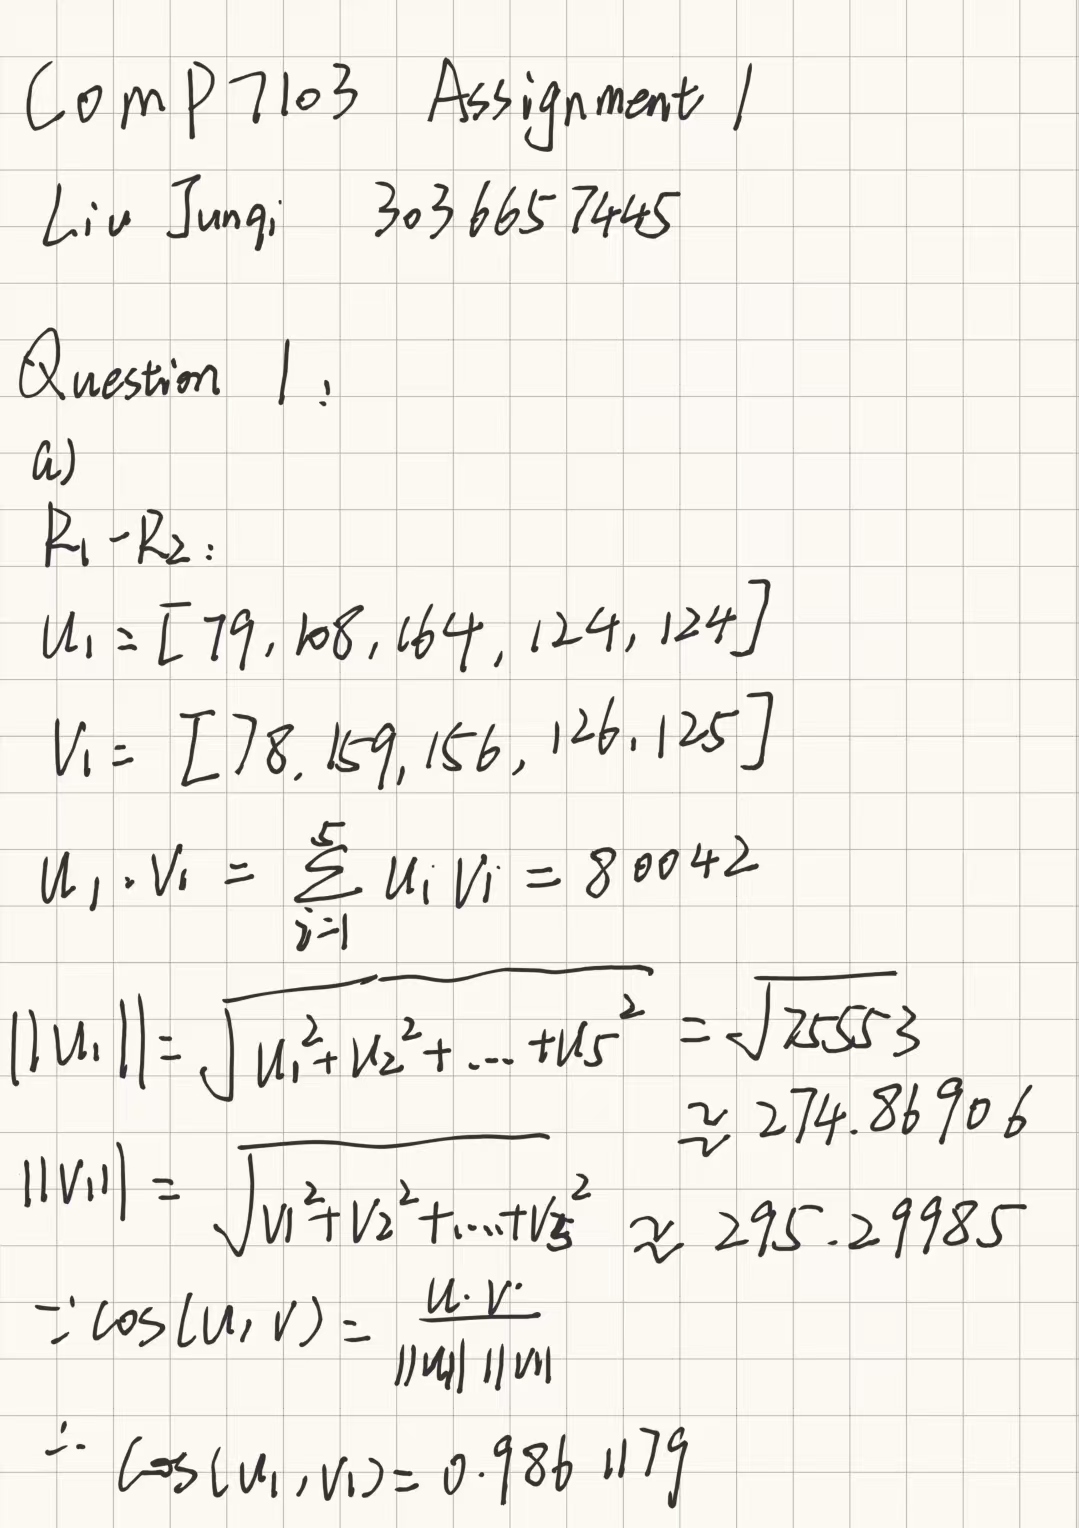 COMP7103 Assignment 1
Liu Junqi 3036657445
Question 1:
a)
R₁-R₂:
u₁ = [79, 108, 164, 124, 124]
V₁ = [78, 159, 156, 126, 125]
u₁·V₁ = ∑_{i=1}^{5} uᵢVᵢ = 80042
||u₁|| = √(u₁²+u₂²+....+u₅²) = √75553
≈ 274.86906
||V₁|| = √(V₁²+V₂²+....+V₅²) ≈ 295.29985
∵ cos(u,v) = u·v / ||u|| ||v||
∴ Cos(u₁,V₁) = 0.9861179